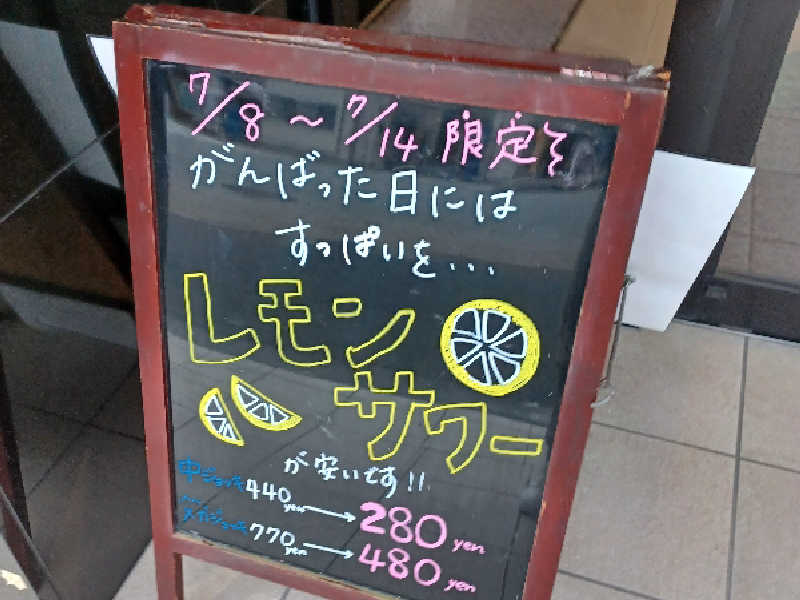 7/8～7/14 限定
がんばった日には
すっぱいを...
レモン
サワー
が安いです!!
中ジョッキ 440yen → 280yen
メガジョッキ 770yen → 480yen